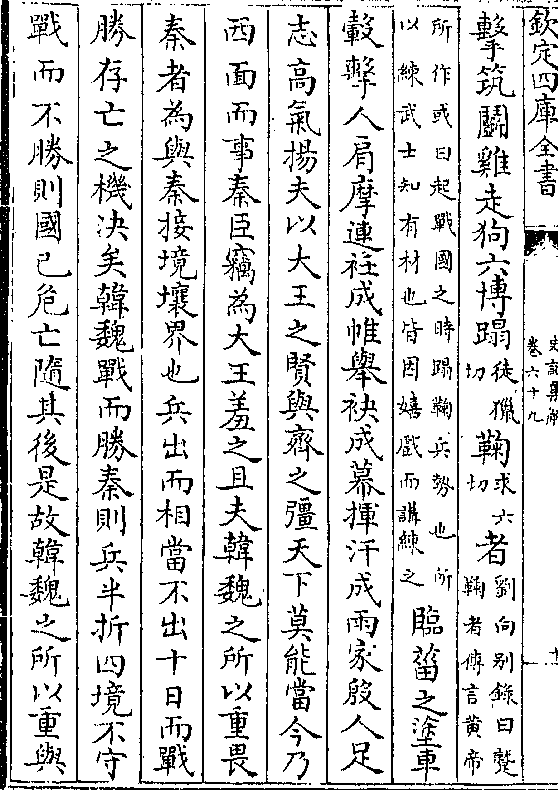 欽定四庫全書
史記集解
卷六十九
擊筑鬭雞走狗六博蹋徒獵切鞠求六切者劉向别錄曰蹵鞠者傳言黄帝
所作或曰起戰國之時蹋鞠兵勢也所以練武士知有材也皆因嬉戲而講練之臨菑之塗車
轂擊人肩摩連袵成帷舉袂成幕揮汗成雨家殷人足
志高氣揚夫以大王之賢與齊之彊天下莫能當今乃
西面而事秦臣竊為大王羞之且夫韓魏之所以重畏
秦者為與秦接境壤界也兵出而相當不出十日而戰
勝存亡之機决矣韓魏戰而勝秦則兵半折四境不守
戰而不勝則國已危亡隨其後是故韓魏之所以重與